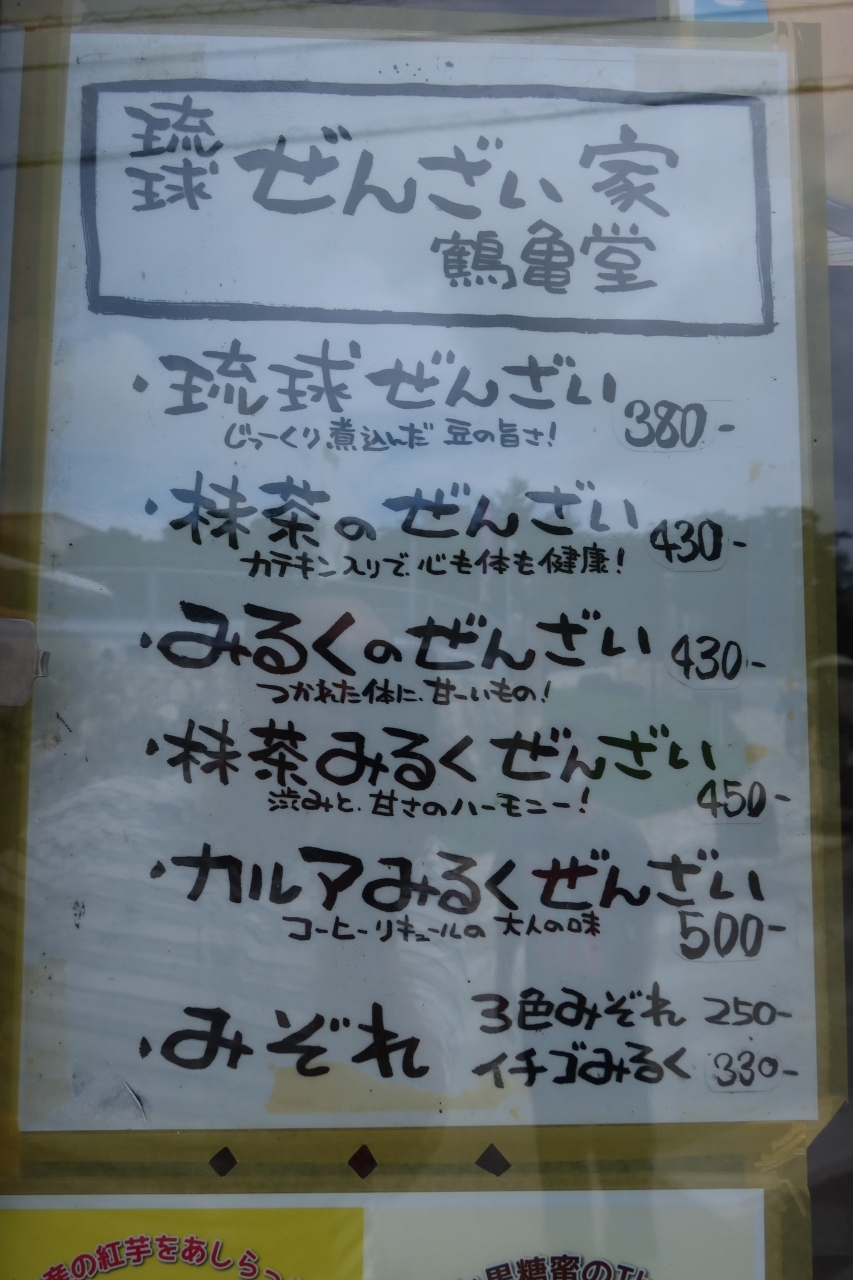 琉球 ぜんざい家
鶴亀堂
・琉球ぜんざい 380-
じっーくり煮込んだ 豆の旨さ!
・抹茶のぜんざい 430-
カテキン入りで、心も体も健康!
・みるくのぜんざい 430-
つかれた体に、甘ーいもの!
・抹茶みるくぜんざい 450-
渋みと、甘さのハーモニー!
・カルアみるくぜんざい 500-
コーヒーリキュールの 大人の味
・みぞれ 3色みぞれ 250-
イチゴみるく 330-
産の紅芋をあしらっ
黒糖蜜の